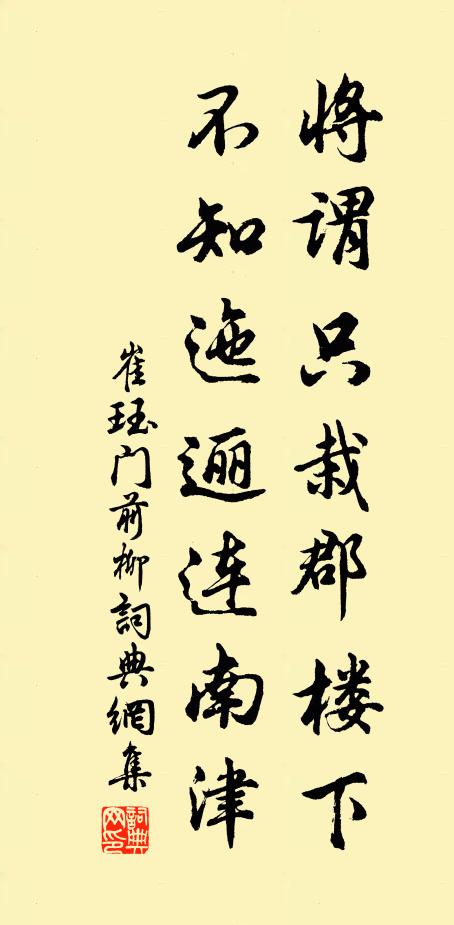 将谓只栽郡楼下
不知迤逦连南津
崔珏门前柳詞典網集
詞典網印